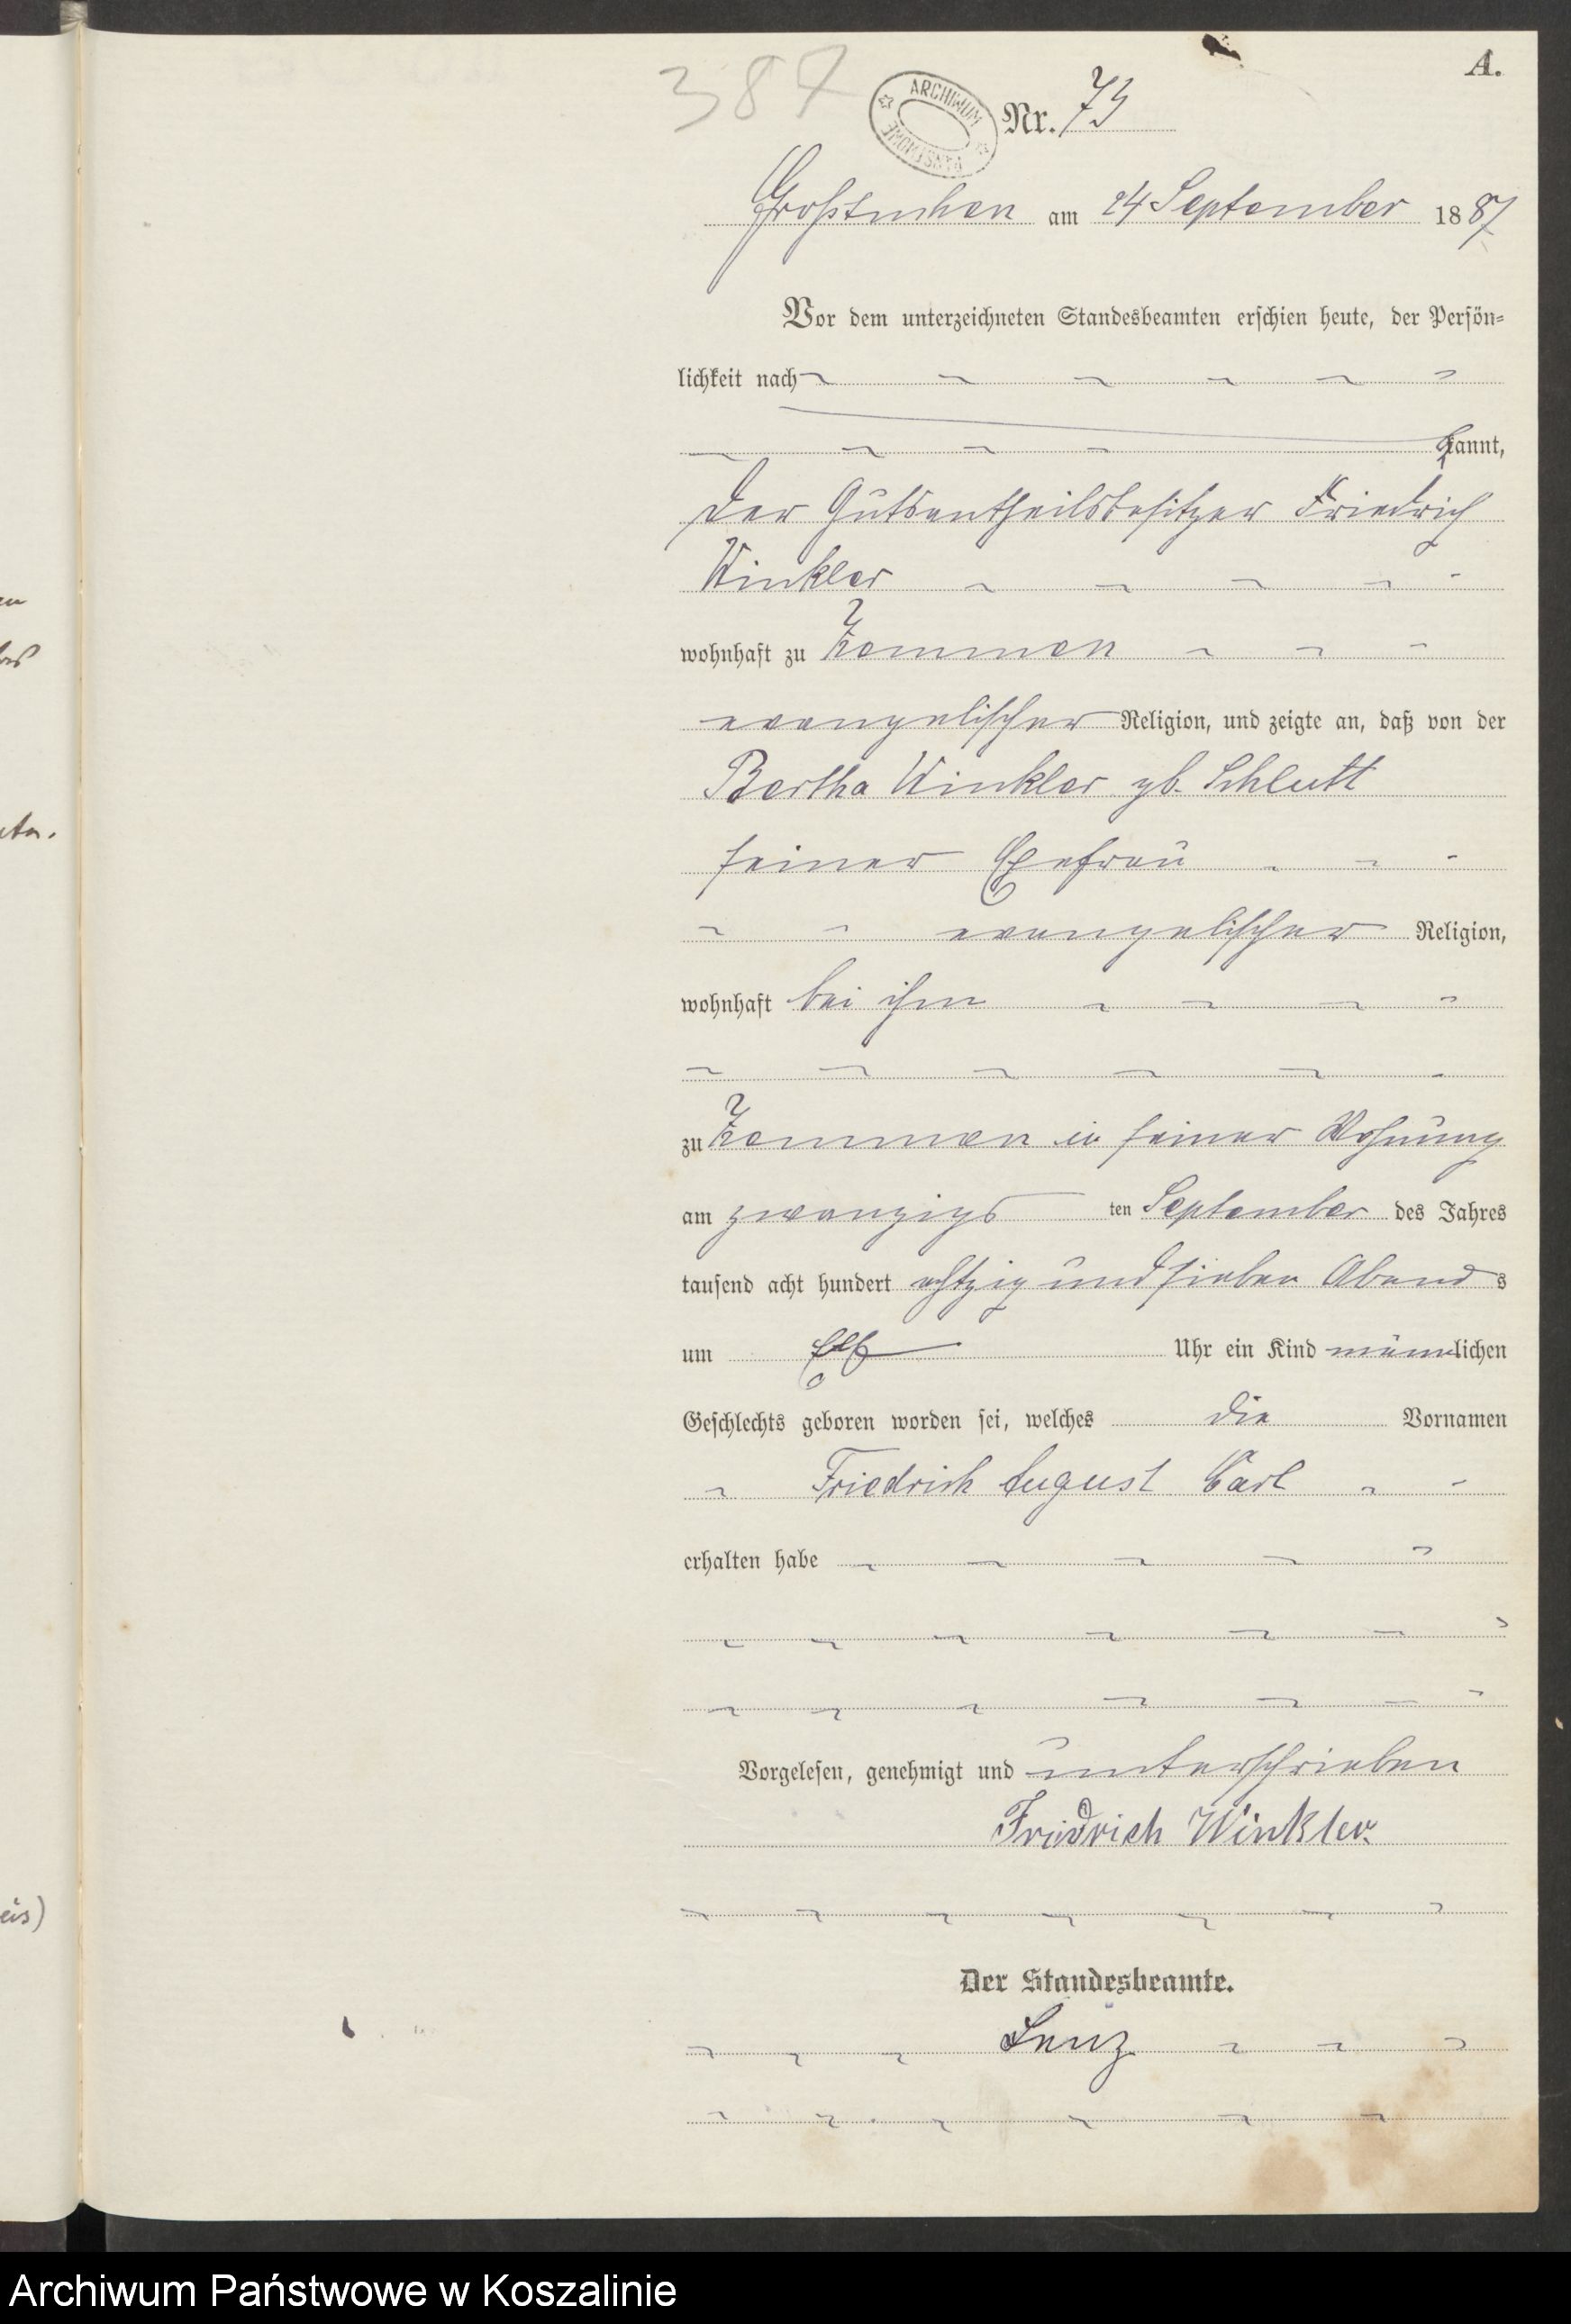 A.
387
ARCHIWUM PAŃSTWOWE
Nr. 73
Großtuchen am 24 September 1887
Vor dem unterzeichneten Standesbeamten erschien heute, der Persön-
lichkeit nach
kannt,
der Gutsantheilsbesitzer Friedrich
Winkler
wohnhaft zu Zemmen
evangelischer Religion, und zeigte an, daß von der
Bertha Winkler gb. Schlutt
seiner Ehefrau
evangelischer Religion,
wohnhaft bei ihm
zu Zemmen in seiner Wohnung
am zwanzigs ten September des Jahres
tausend acht hundert achtzig und sieben Abends
um Elf Uhr ein Kind männlichen
Geschlechts geboren worden sei, welches die Vornamen
Friedrich August Carl
erhalten habe
Vorgelesen, genehmigt und unterschrieben
Friedrich Winkler.
Der Standesbeamte.
Lenz
Archiwum Państwowe w Koszalinie